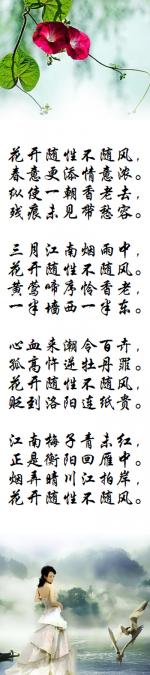 花开随性不随风，
春意更添情意浓。
纵使一朝香老去，
残痕未见带愁容。
三月江南烟雨中，
花开随性不随风。
黄莺啼序怜香老，
一半墙西一半东。
心血来潮令百卉，
孤高忤逆牡丹罪。
花开随性不随风，
贬到洛阳连纸贵。
江南梅子青未红，
正是衡阳回雁中。
烟弄晴川江拍岸，
花开随性不随风。